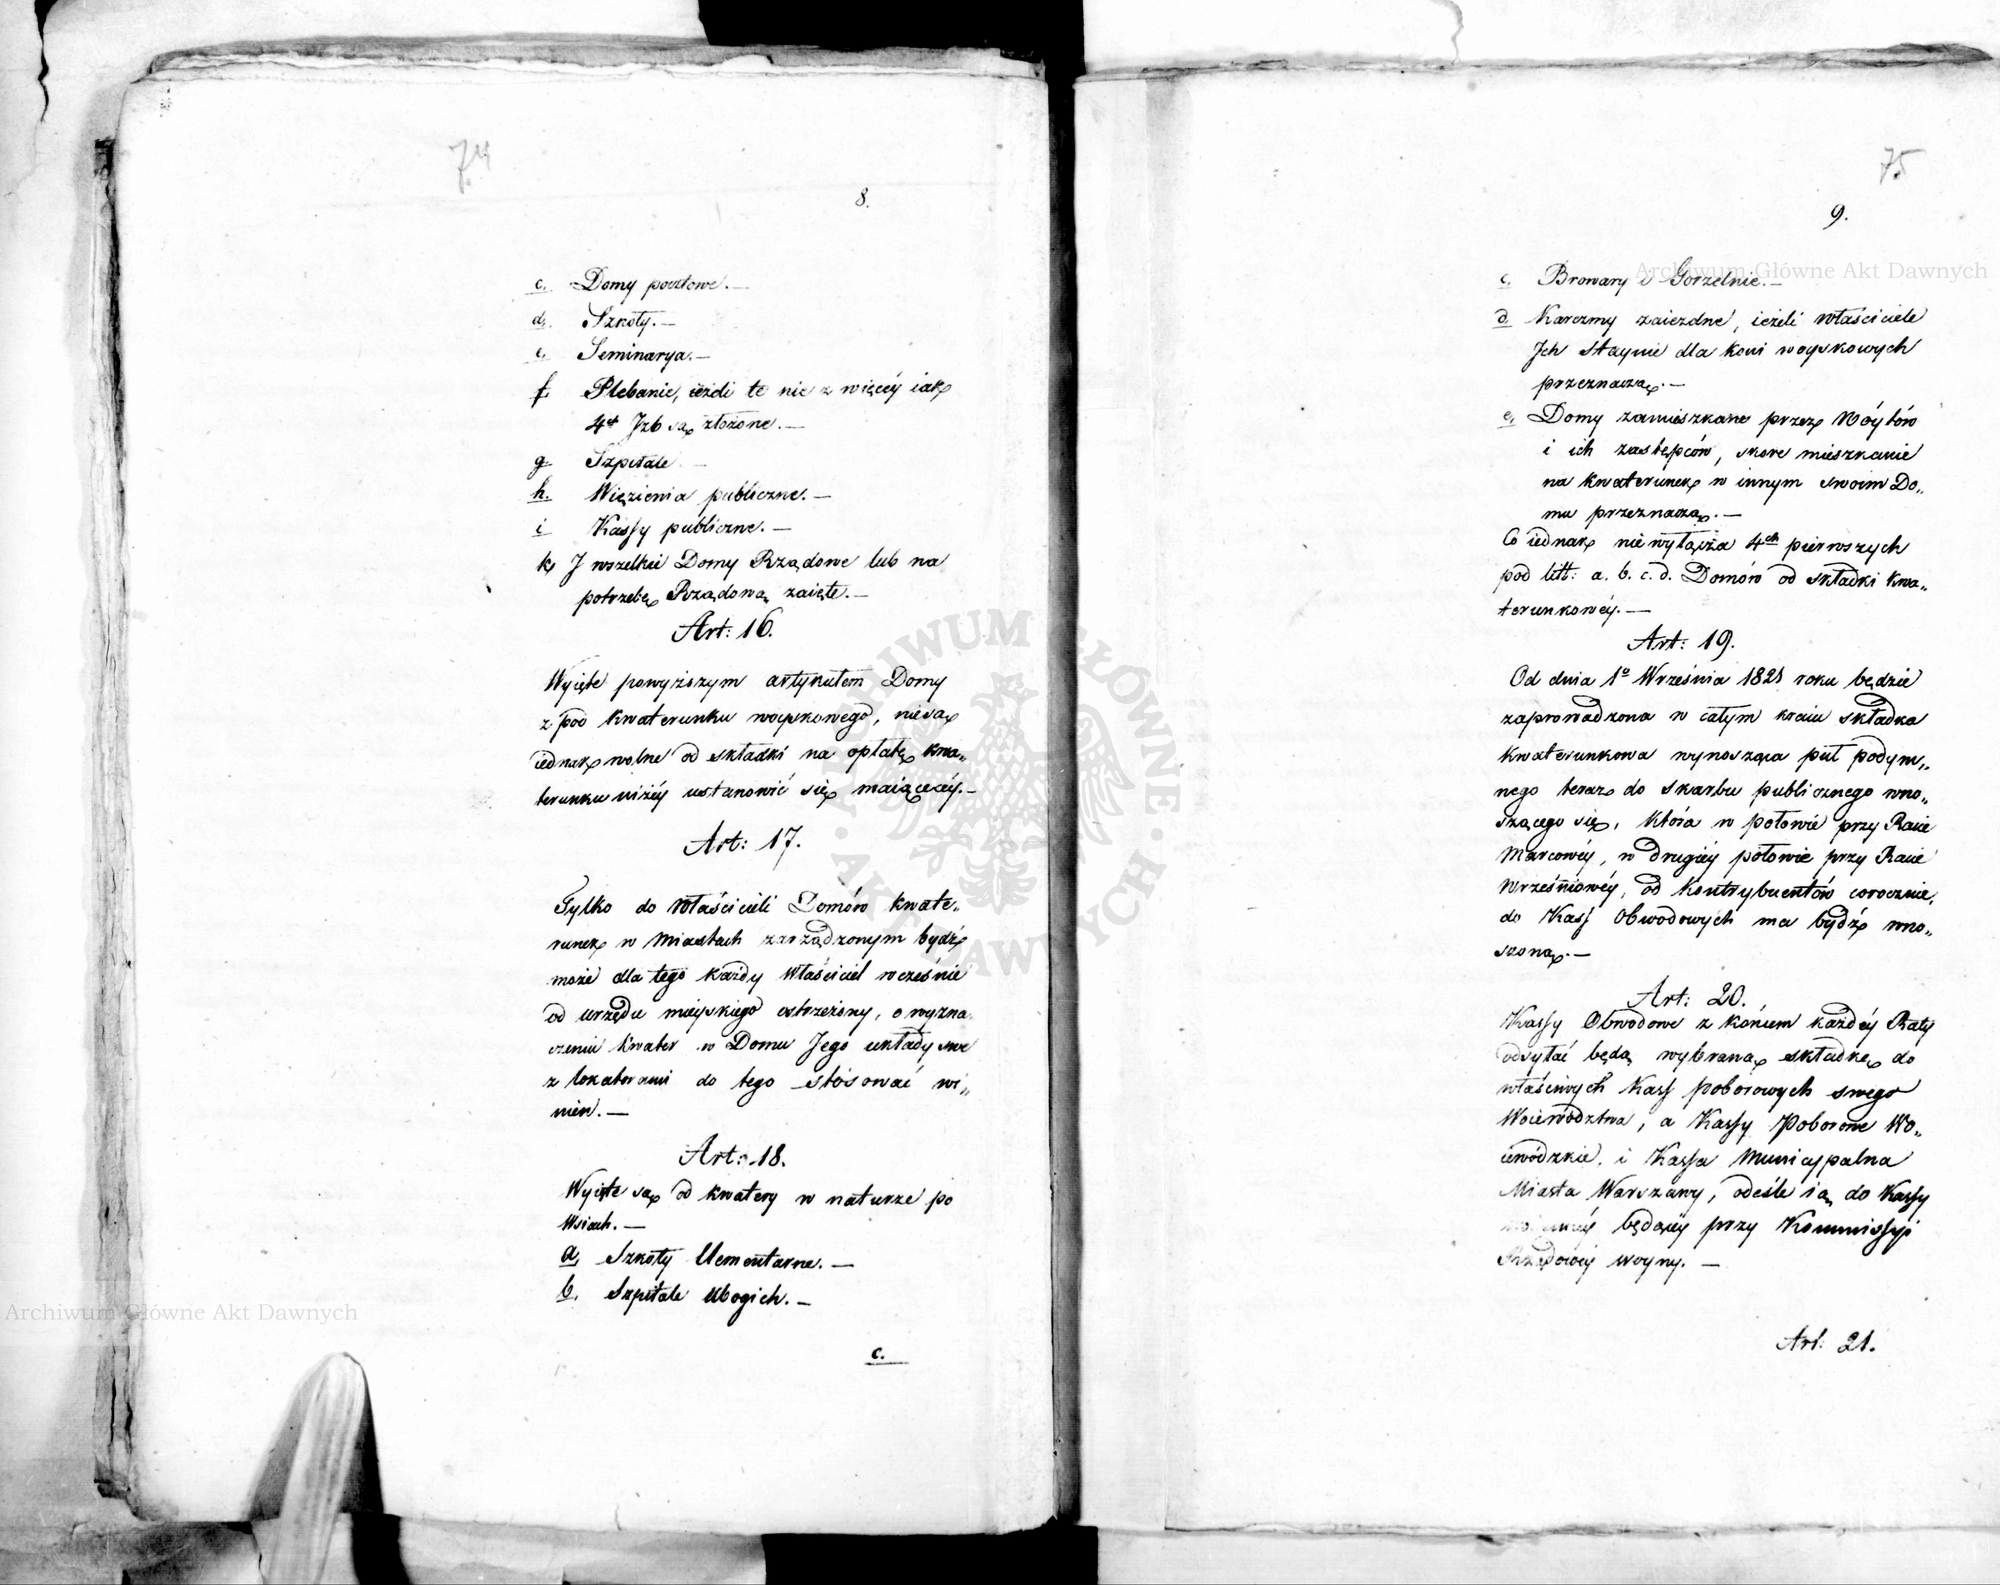 74
8.
c. Domy pocztowe. —
d. Szkoły. —
e. Seminarya. —
f. Plebanie, ieżeli te nie z więcéy iak
4ch Jzb są złożone. —
g Szpitale —
h. Więzienia publiczne. —
i Kassy publiczne. —
k, J wszelkie Domy Rządowe lub na
potrzebę Rządową zaięte. —
Art: 16.
Wyięte powyższym artykułem Domy
z pod kwaterunku woyskowego, nie są
iednak wolne od składki na opłatę kwa„
terunku niżéy ustanowić się maiącéy. —
Art: 17.
Tylko do Właścicieli Domów kwate„
runek w Miastach zarządzonym bydź
może dla tego każdy Właściciel wcześnie
od urzędu mieyskiego ostrzeżony, o wyzna„
czeniu kwater w Domu Jego układy swe
z lokatorami do tego stósować wi„
nien. —
Art: 18.
Wyięte są od kwatery w naturze po
Wsiach. —
a, Szkoły Elementarne. —
b, Szpitale Ubogich. —
c.
75
9.
c, Browary i Gorzelnie. —
d Karczmy zaiezdne, ieżeli właściciele
Jch staynie dla koni woyskowych
przeznaczą. —
e, Domy zamieszkane przez Wóytów
i ich zastępców, skoro mieszkanie
na kwaterunek w innym swoim Do„
mu przeznaczą. —
Co iednak nie wyłącza 4ch pierwszych
pod litt: a. b. c. d. Domów od składki kwa„
terunkowéy. —
Art: 19.
Od dnia 1o Września 1821 roku będzie
zaprowadzona w całym kraiu składka
kwaterunkowa wynosząca puł podym„
nego teraz do skarbu publicznego wno„
szącego się, która w połowie przy Racie
Marcowéy, w drugiéy połowie przy Racie
Wrześniowéy, od kontrybuentów corocznie,
do Kass Obwodowych ma bydź wno„
szoną. —
Art: 20.
Kassy Obwodowe z końcem każdéy Raty
odsyłać będą wybraną składkę do
właściwych Kass poborowych swego
Województwa, a Kassy Poborowe Wo„
iewódzkie, i Kassa Municypalna
Miasta Warszawy, odeśle ią do Kassy
będącéy przy Kommissyi
Rządowéy woyny. —
Art: 21.
Archiwum Główne Akt Dawnych
Archiwum Główne Akt Dawnych
ARCHIWUM GŁÓWNE AKT DAWNYCH